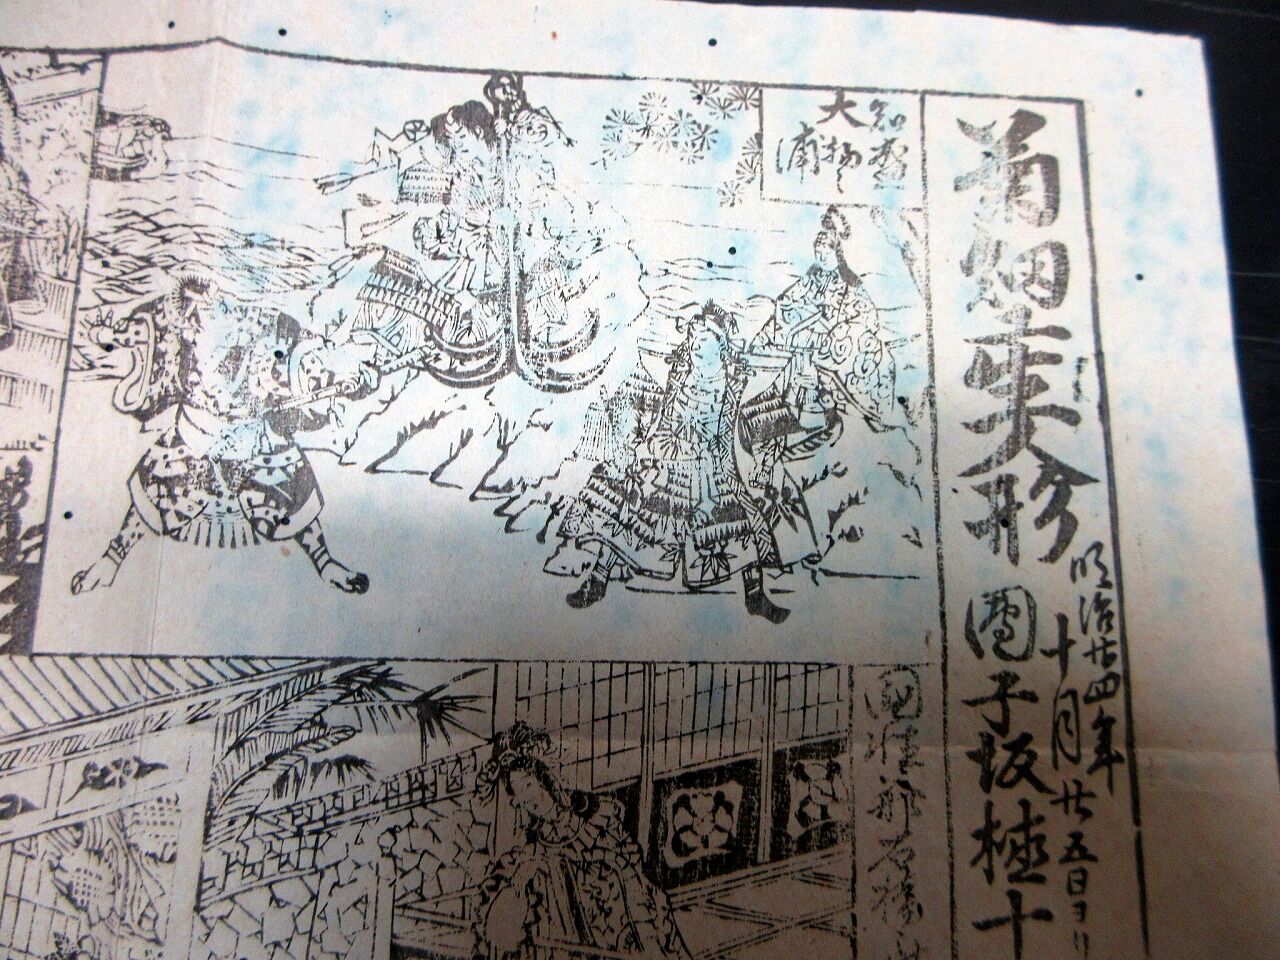 菊畑生人形 團子坂 植十
明治廿四年
十月廿五日ヨリ
知盛
大物之
浦
国性爺